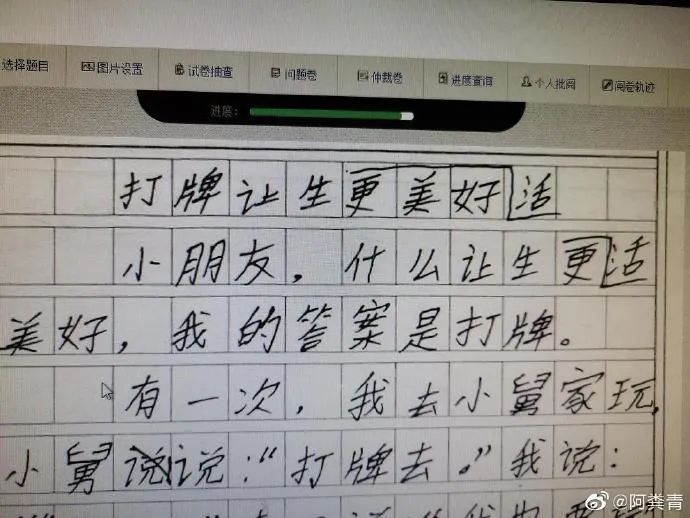 选择题目 图片设置 试卷抽查 问题卷 仲裁卷 进度查询 个人批阅 阅卷轨迹
进度:
打牌让生更美好活
小朋友,什么让生更活
美好,我的答案是打牌。
有一次,我去小舅家玩,
小舅说说:“打牌去。”我说:
@阿粪青